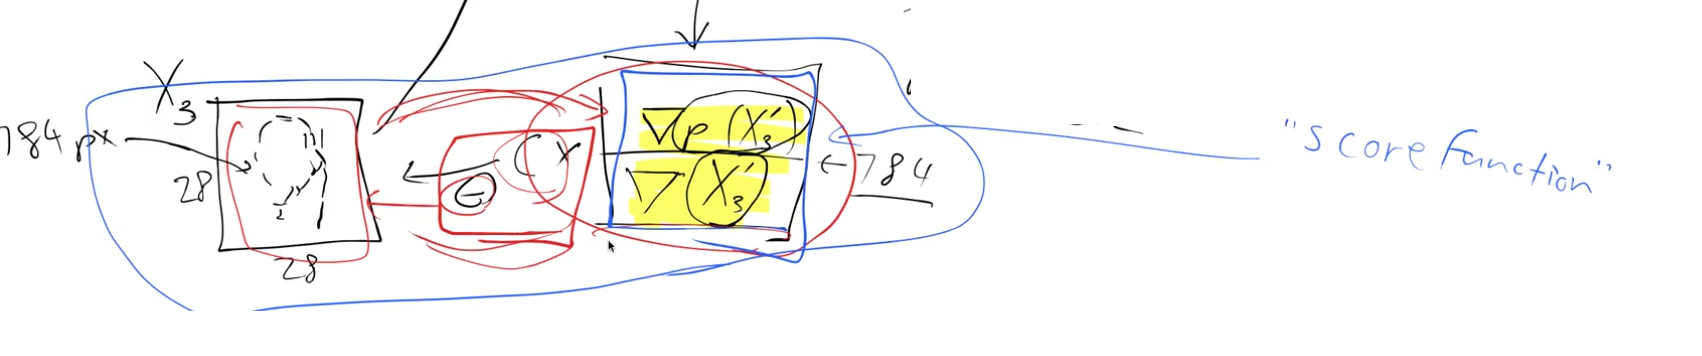 X₃
784 px
28
28
∇p(X₃')
∇X₃'
784
"score function"